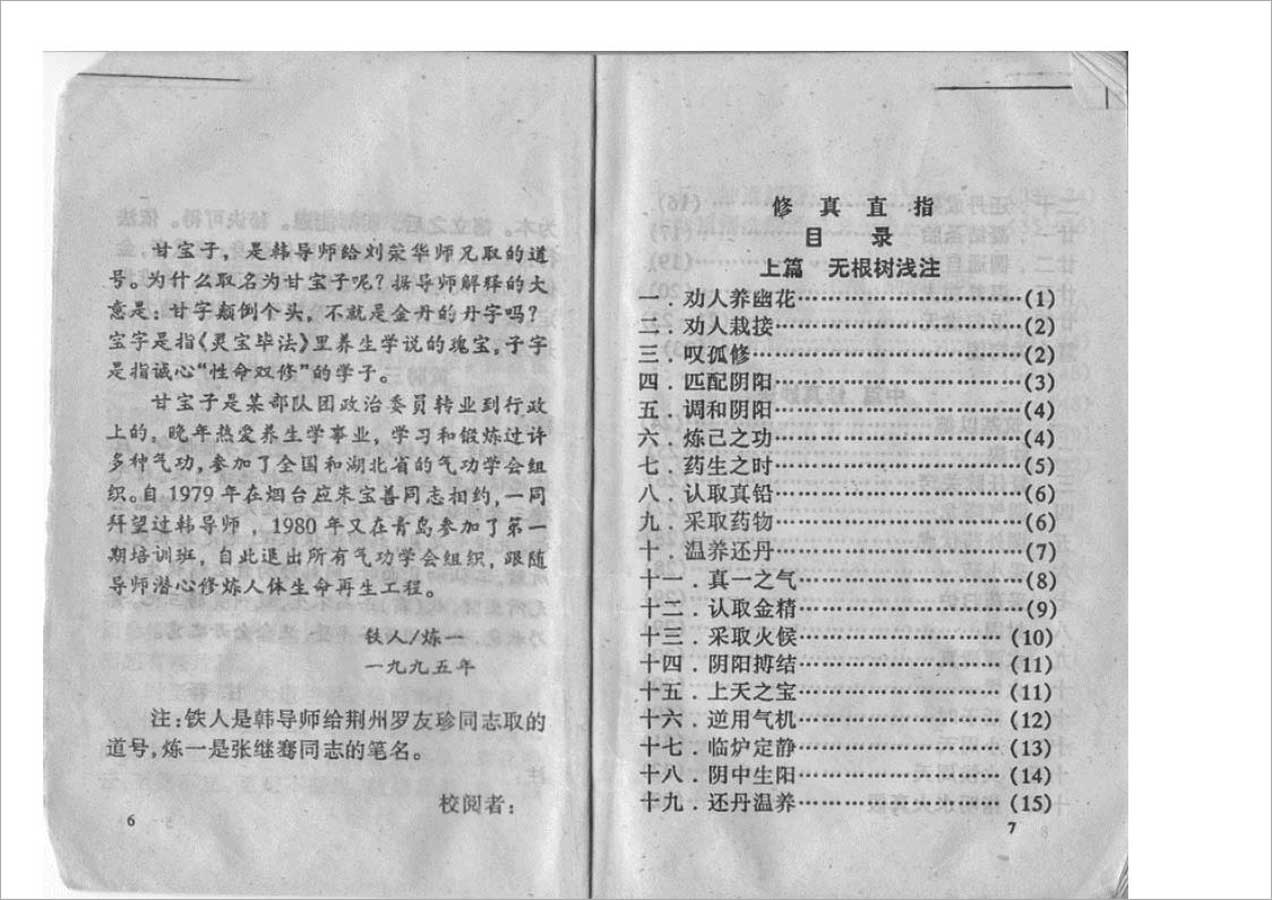 甘宝子，是韩导师给刘荣华师兄取的道
号。为什么取名为甘宝子呢？据导师解释的大
意是：甘字颠倒个头，不就是金丹的丹字吗？
宝字是指《灵宝毕法》里养生学说的瑰宝，子字
是指诚心“性命双修”的学子。
甘宝子是某部队团政治委员转业到行政
上的，晚年热爱养生学事业，学习和锻炼过许
多种气功，参加了全国和湖北省的气功学会组
织。自1979年在烟台应朱宝善同志相约，一同
拜望过韩导师，1980年又在青岛参加了第一
期培训班，自此退出所有气功学会组织，跟随
导师潜心修炼人体生命再生工程。
铁人/炼一
一九九五年
注：铁人是韩导师给荆州罗友珍同志取的
道号，炼一是张继骞同志的笔名。
校阅者：
6
修真直指
目 录
上篇 无根树浅注
一．劝人养幽花……………………………(1)
二．劝人栽接……………………………(2)
三．叹孤修……………………………(2)
四．匹配阴阳……………………………(3)
五．调和阴阳……………………………(4)
六．炼己之功……………………………(4)
七．药生之时……………………………(5)
八．认取真铅……………………………(6)
九．采取药物……………………………(6)
十．温养还丹……………………………(7)
十一．真一之气…………………………(8)
十二．认取金精…………………………(9)
十三．采取火候…………………………(10)
十四．阴阳搏结…………………………(11)
十五．上天之宝…………………………(11)
十六．逆用气机…………………………(12)
十七．临炉定静…………………………(13)
十八．阴中生阳…………………………(14)
十九．还丹温养…………………………(15)
7